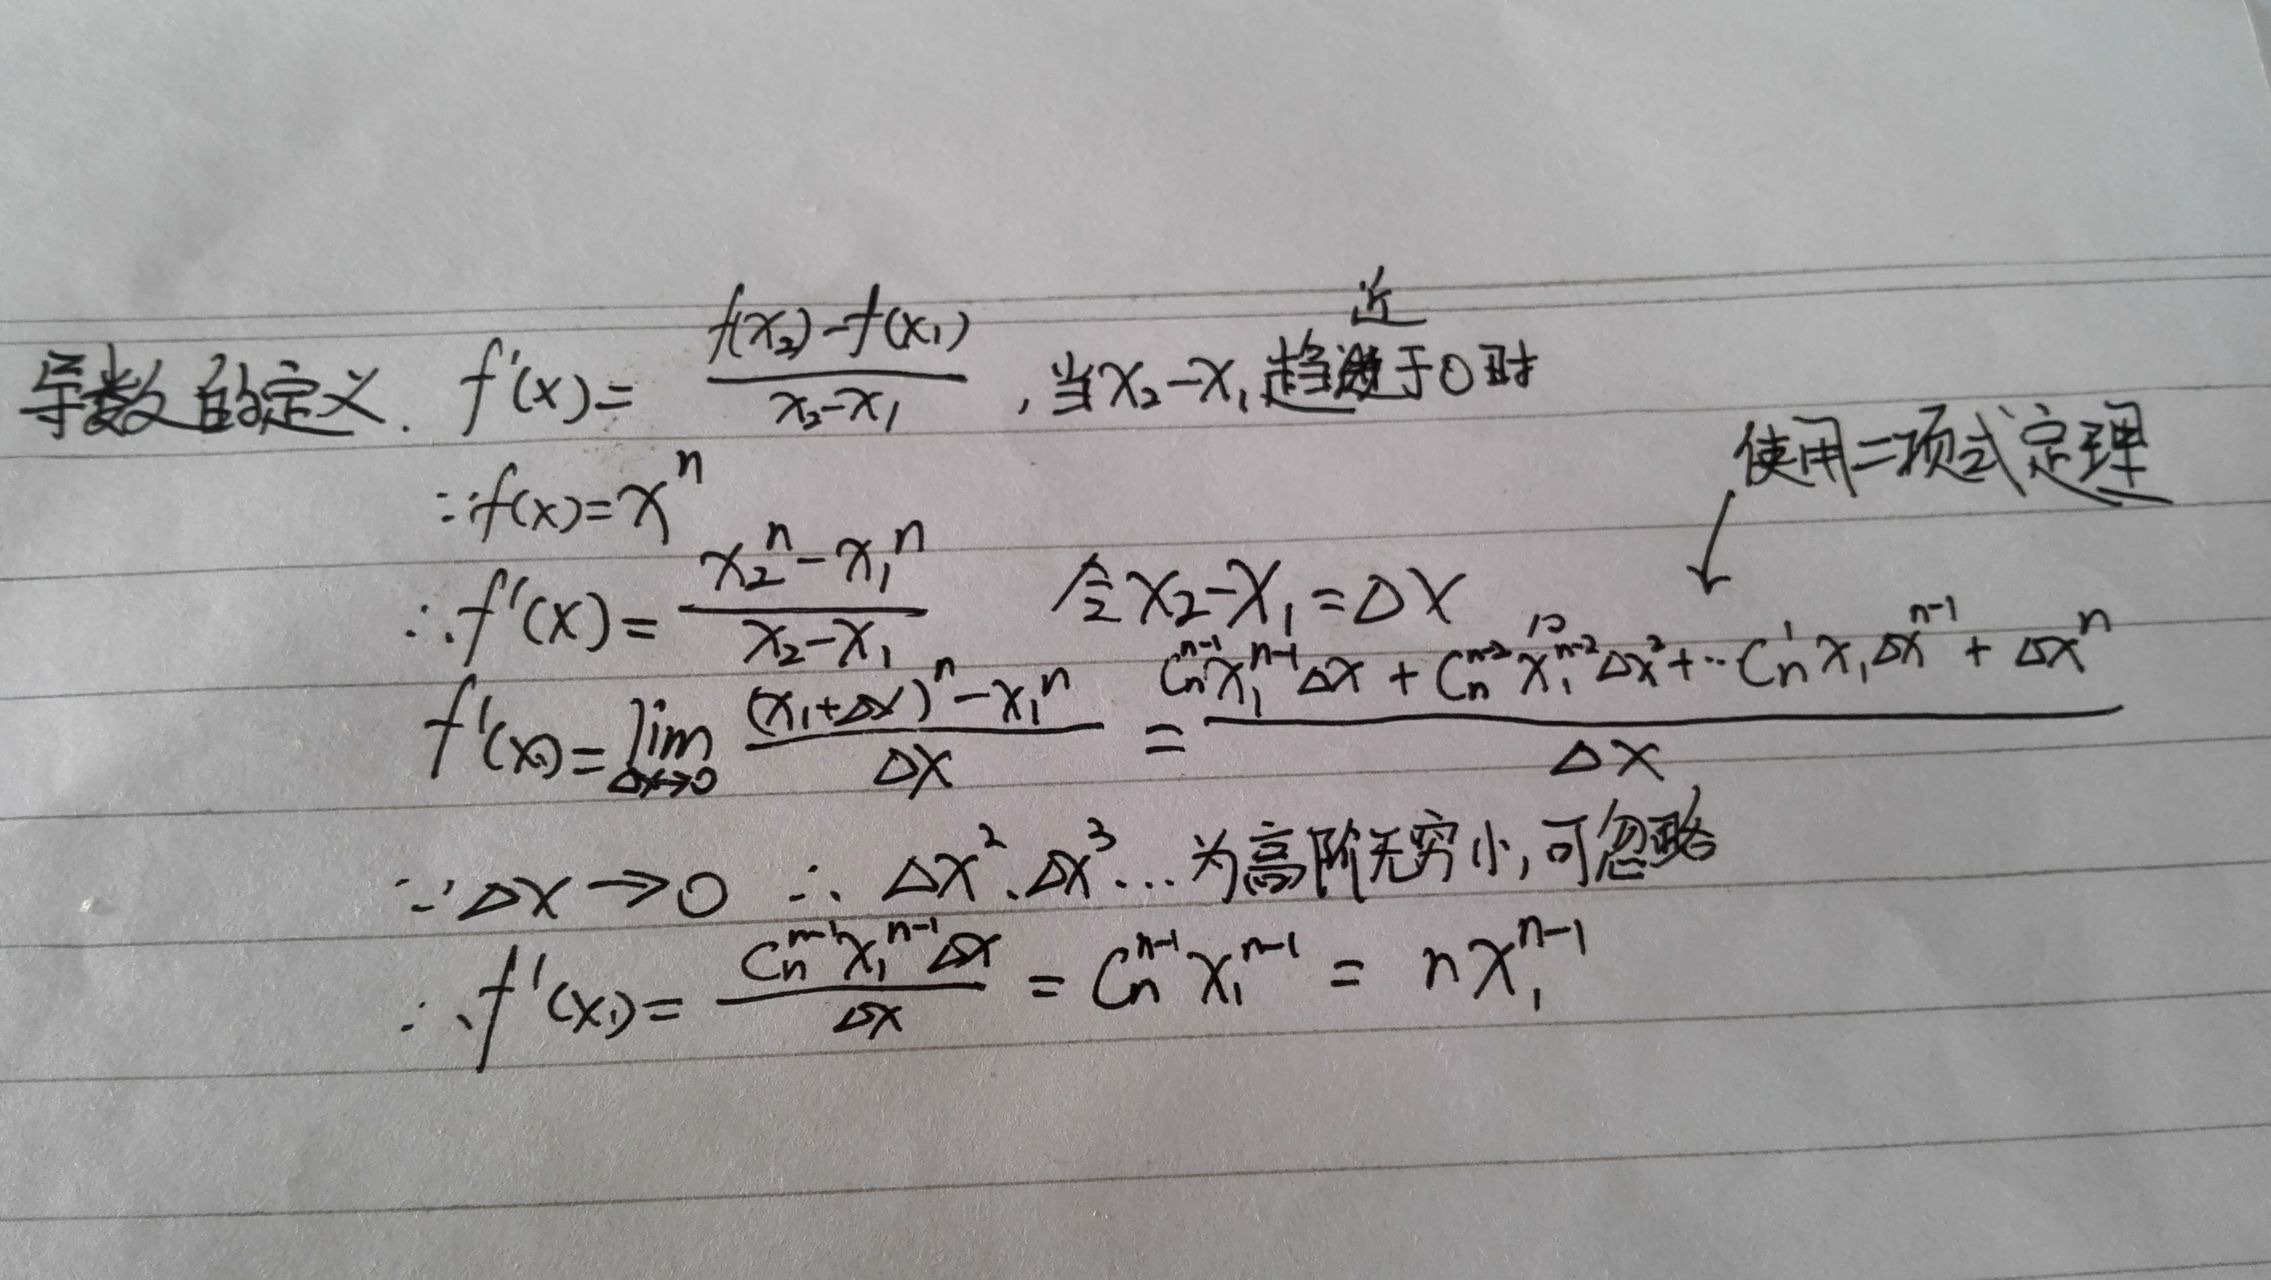 近
导数的定义. f'(x)= (f(x₂)-f(x₁))/(x₂-x₁) ,当x₂-x₁趋于0时
使用二项式定理
∵f(x)=xⁿ
∴f'(x)= (x₂ⁿ-x₁ⁿ)/(x₂-x₁) 令x₂-x₁=Δx
f'(x₁)=lim_{Δx→0} ((x₁+Δx)ⁿ-x₁ⁿ)/Δx = (Cₙⁿ⁻¹x₁ⁿ⁻¹Δx+Cₙⁿ⁻²x₁ⁿ⁻²Δx²+⋯Cₙ¹x₁Δxⁿ⁻¹+Δxⁿ)/Δx
∵Δx→0 ∴Δx²、Δx³…为高阶无穷小,可忽略
∴f'(x₁)= (Cₙⁿ⁻¹x₁ⁿ⁻¹Δx)/Δx = Cₙⁿ⁻¹x₁ⁿ⁻¹ = nx₁ⁿ⁻¹